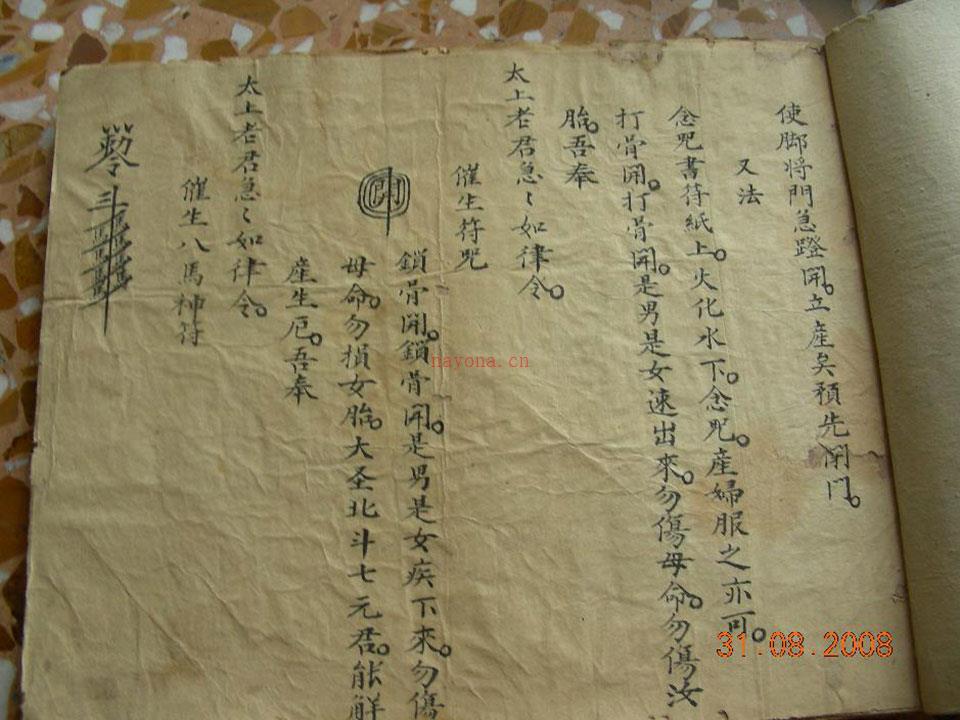 使脚将門急蹬開。立産矣預先閉門。
又法
念咒書符紙上。火化水下。念咒。産婦服之亦可。
打骨開。打骨開。是男是女速出來。勿傷母命。勿傷汝
胎。吾奉
太上老君急〻如律令。
催生符咒
鎖骨開。鎖骨開。是男是女疾下來。勿傷
母命。勿損女胎。大圣北斗七元君。能解
産生厄。吾奉
太上老君急〻如律令。
催生八馬神符
nayona.cn
31.08.2008